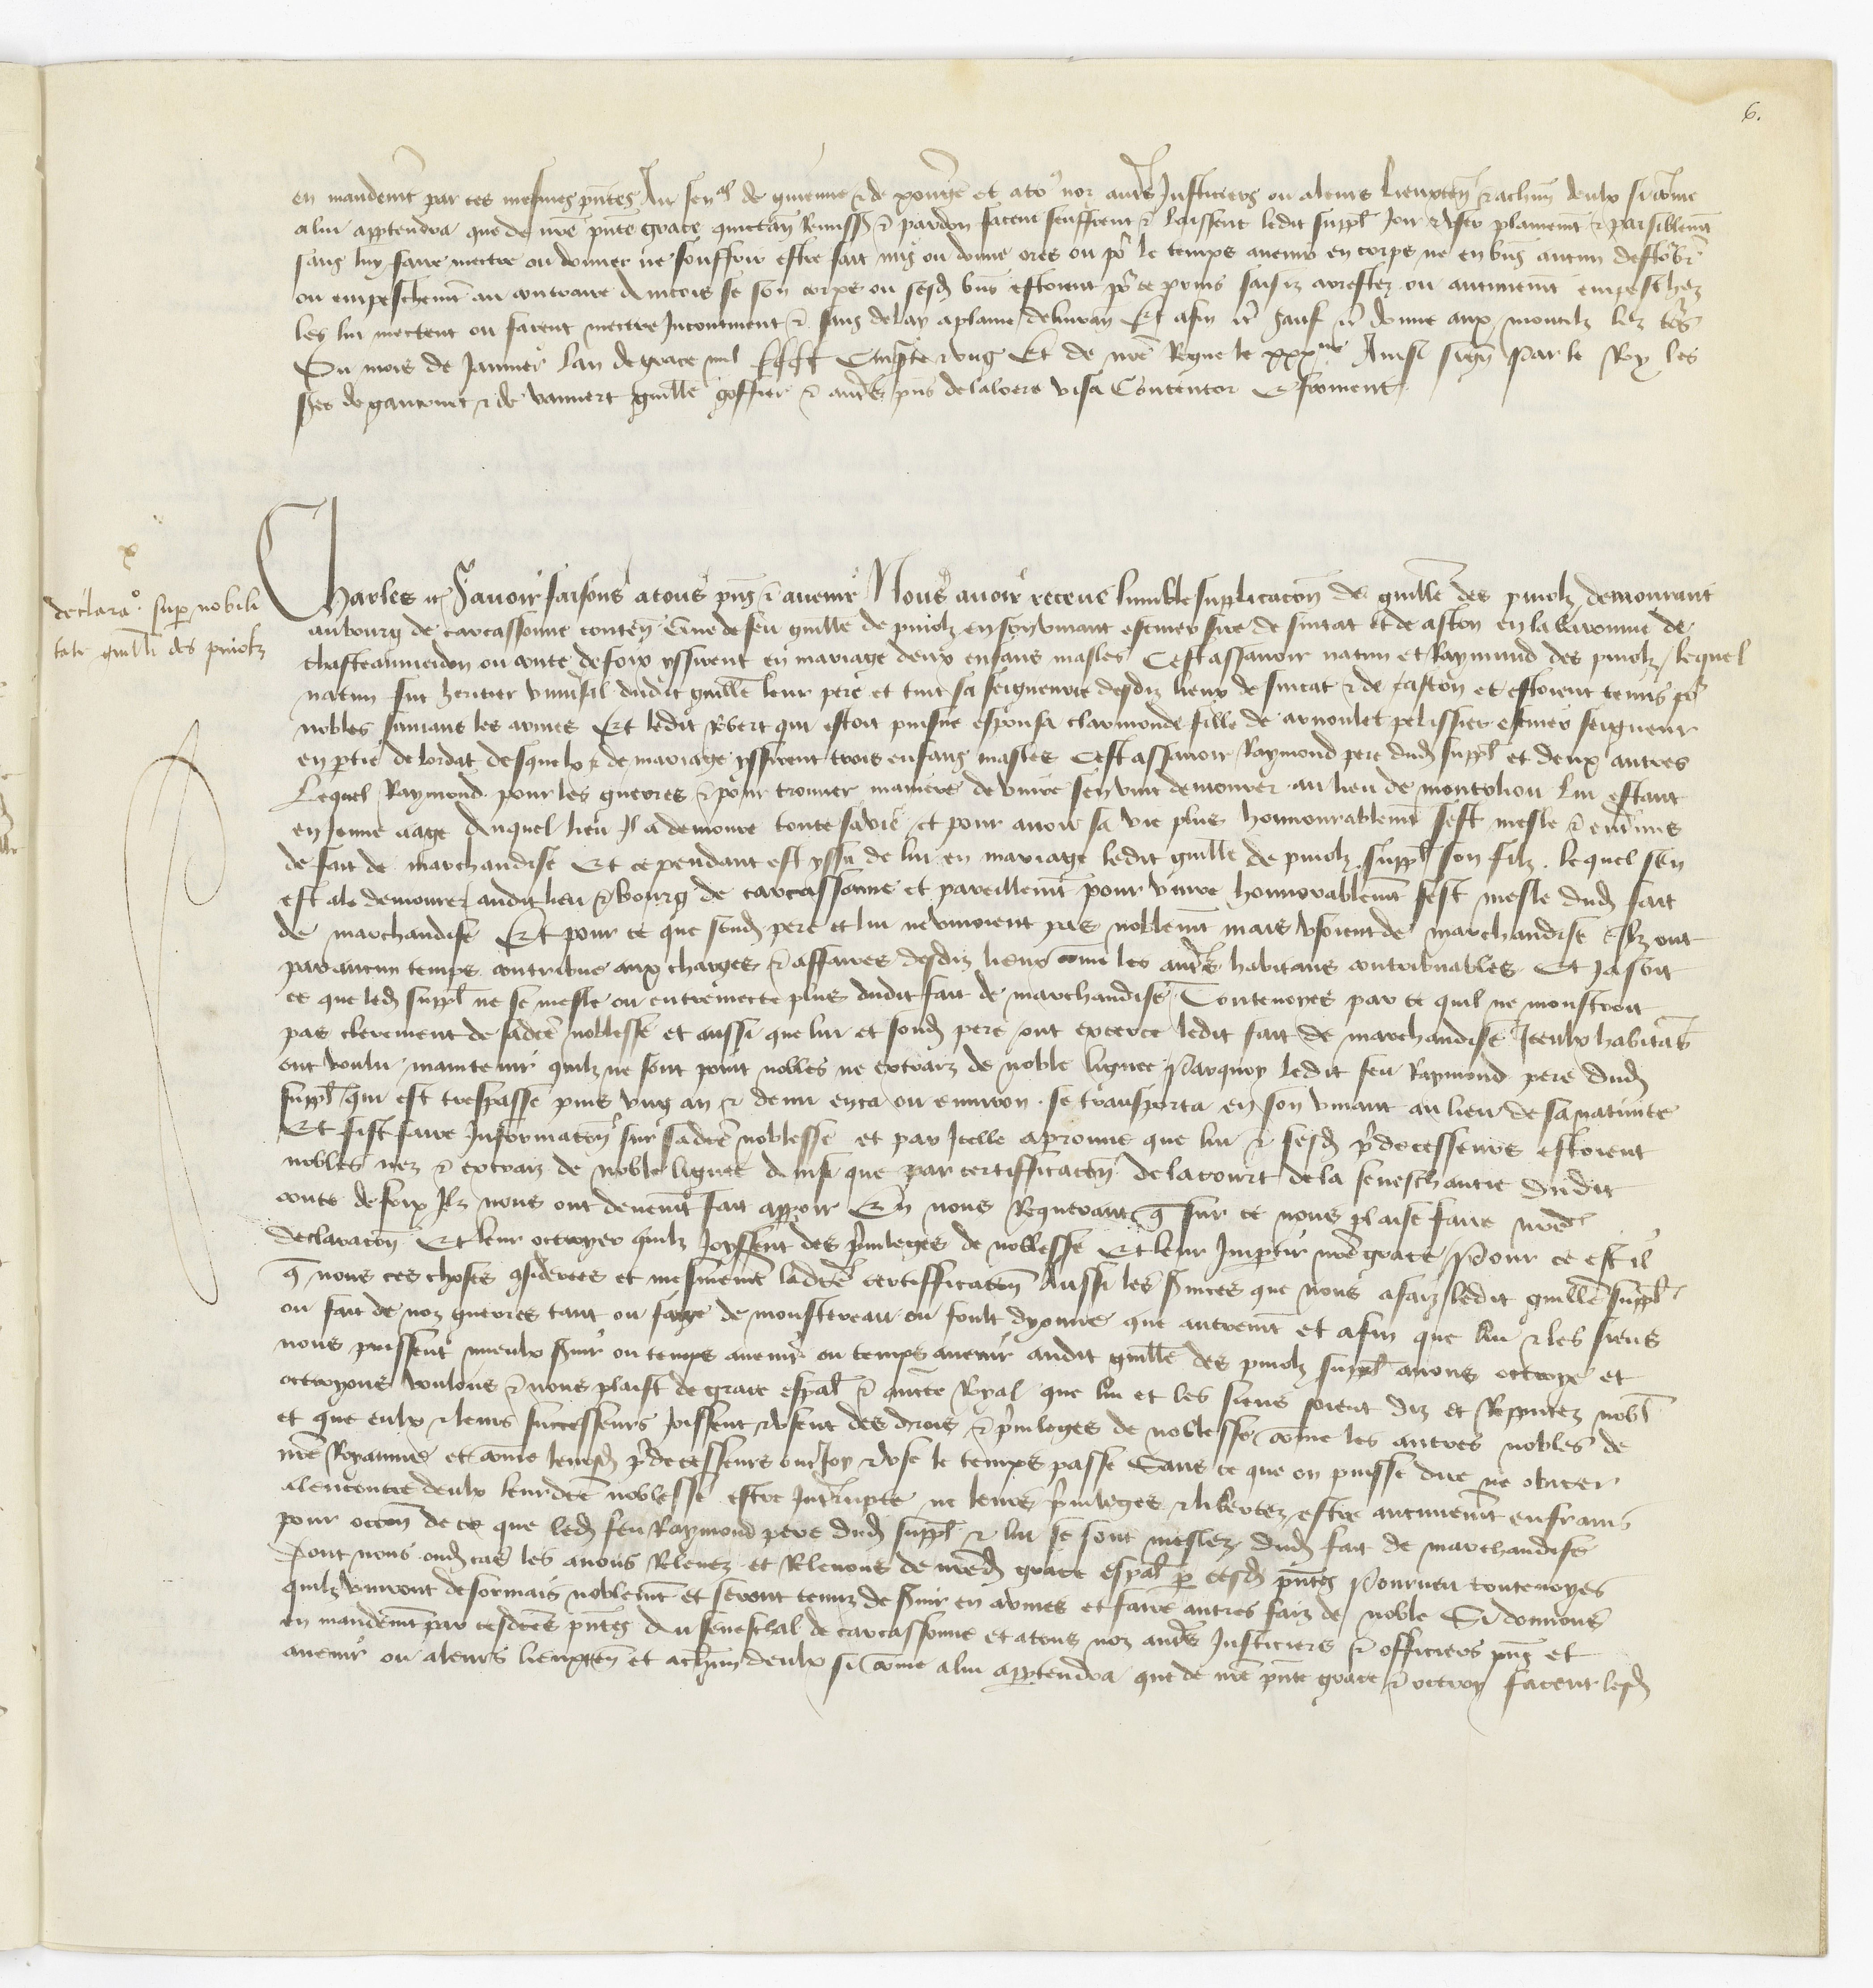 6.
en mandemt par ces mesmes pñtes Au senal de guienne & de xantge et a to9 noz autres Justiciers ou a leurs lieuxteñ & a chũn deulx si cõme
a lui apptendra que de nrẽ pñte grace quictañ Remissõ & pardon facent seuffrent & laissent ledit suppl Joir & user plainemt & paisiblemt
sans luy faire mectre ou donner ne souffrir estre fait mis ou donne ores ou pr le temps avenir en corps ne en biẽs aucun destorbr
ou empeschemt au contraire Aincois se son corps ou sesd biẽs estoient pr ce prins saisiz arrestez ou autrement empeschez
les lui mectent ou facent mectre Incontinent & sans delay a plaine delivrañ Et afin etc sauf etc donne aux montilz lez tours
Ou mois de Janvier lan de grace mil cccc cinqte & ung Et de nrẽ Regne le xxxme Ainsi signe Par le Roy les
sres de gaucourt & de vauvert guille goffier & autres pñs delaloere visa Contentor E froment
declarao. sup nobili
tate guilli des pujolz
Charles etc Savoir faisons a tous pñs & avenir Nous avoir receue lumble supplicacõn de guille des pujolz demourant
au bourg de carcassonne conteñ Que de feu guille de pujolz en son vivant escuier sire de sincat et de aston en la baronnie de
chasteauverdun ou conte de foix yssirent en mariage deux enfans masles Cestassavoir et Raymund des pujolz lequel
fut heritier univsal dudit guille leur pere et tint sa seigneurie desdiz lieux de sincat & de caston et estoient tenus pr
nobles suivans les armes Et ledit Rbert qui estoit puisne espousa clarmonde fille de arnoulet pelissier escuier seigneur
en ptie de lordat desquelx & de mariage yssirent trois enfans masles Cestassavoir Raymond pere dud suppl et deux autres
Lequel Raymond pour les guerres & pour trouver maniere de vivre sen vint demourer au lieu de montoliou lui estant
en Jeune aage Auquel lieu Il a demoure toute sa vie et pour avoir sa vie plus honnourablemt sest mesle & entremis
de fait de marchandise Et ce pendant est yssu de lui en mariage ledit guille de pujolz suppl son filz lequel sen
est ale demourer audit lieu & bourg de carcassonne et pareillemt pour vivre honnorablemt sest mesle dud fait
de marchandise Et pour ce que sond pere et lui ne vivoient pas noblemt mais usoient de marchandise Ilz ont
par aucun temps contribue aux charges & affaires desdiz lieux cõme les autres habitans contribuables Et Jasoit
ce que led suppl ne se mesle ou entremecte plus dudit fait de marchandise Toutevoyes par ce quil ne monstroit
pas clerement de sadcẽ noblesse et aussi que lui et sond pere ont exerce ledit fait de marchandise Iceulx habitãs
ont voulu maintenir quilz ne sont point nobles ne extraiz de noble lignee Parquoy ledit feu Raymond pere dud
suppl qui est trespasse puis ung an & demi enca ou environ se transporta en son vivant au lieu de sa nativite
Et fist faire Informacõn sur sadcẽ noblesse et par Icelle aprouve que lui & sesd pdecesseurs estoient
nobles nez & extraiz de noble lignee Ainsi que par certifficacõn de la court de la seneschaucie dudit
conte de foix Ilz nous ont deuemt fait apparoir En nous Requerant q sur ce nous plaise faire nrẽ
declaracõn Et leur octroyer quilz Joyssent des privileges de noblesse Et leur Impartir nrẽ grace Pour ce est il
q nous ces choses gsiderees et mesmemt ladcẽ certifficacõn Aussi les svices que nous a faiz ledit guille suppl
ou fait de noz guerres tant ou siege de monstereau ou foult dyonne que autremt et afin que lui & les siens
nous puissent mieulx svir ou temps avenir ou temps avenir audit guille des pujolz suppl avons octroye et
octroyons voulons & nous plaist de grace espal & aucte Royal que lui et les siens soient diz et Repputez nobl
et que eulx & leurs successeurs Joissent & usent des drois & privileges de noblesse cõme les autres nobles de
nrẽ Royaume et cõme leursd pdecesseurs ont Joy & use le temps passe Sans ce que on puisse dire ne obicer
alencontre deulx leurdcẽ noblesse estre Interrupte ne leurs privileges & libertez estre aucunemt enfrains
pour occõn de ce que led feu Raymond pere dud suppl & lui se sont meslez dud fait de marchandise
Dont nous oud cas les avons Relevez et Relevons de nrẽd grace espal p cesd pñtes Pourveu toutevoyes
quilz vivront desormais noblemt et seront tenuz de svir en armes et faire autres faiz de noble Si donnons
en mandemt par cesdctes pñtes Au seneschal de carcassonne et a tous noz autres Justiciers & officiers pñs et
avenir ou a leurs lieuxteñ et a chũn deulx si cõme a lui apptendra que de nrẽ pñte grace & octroy facent lesd